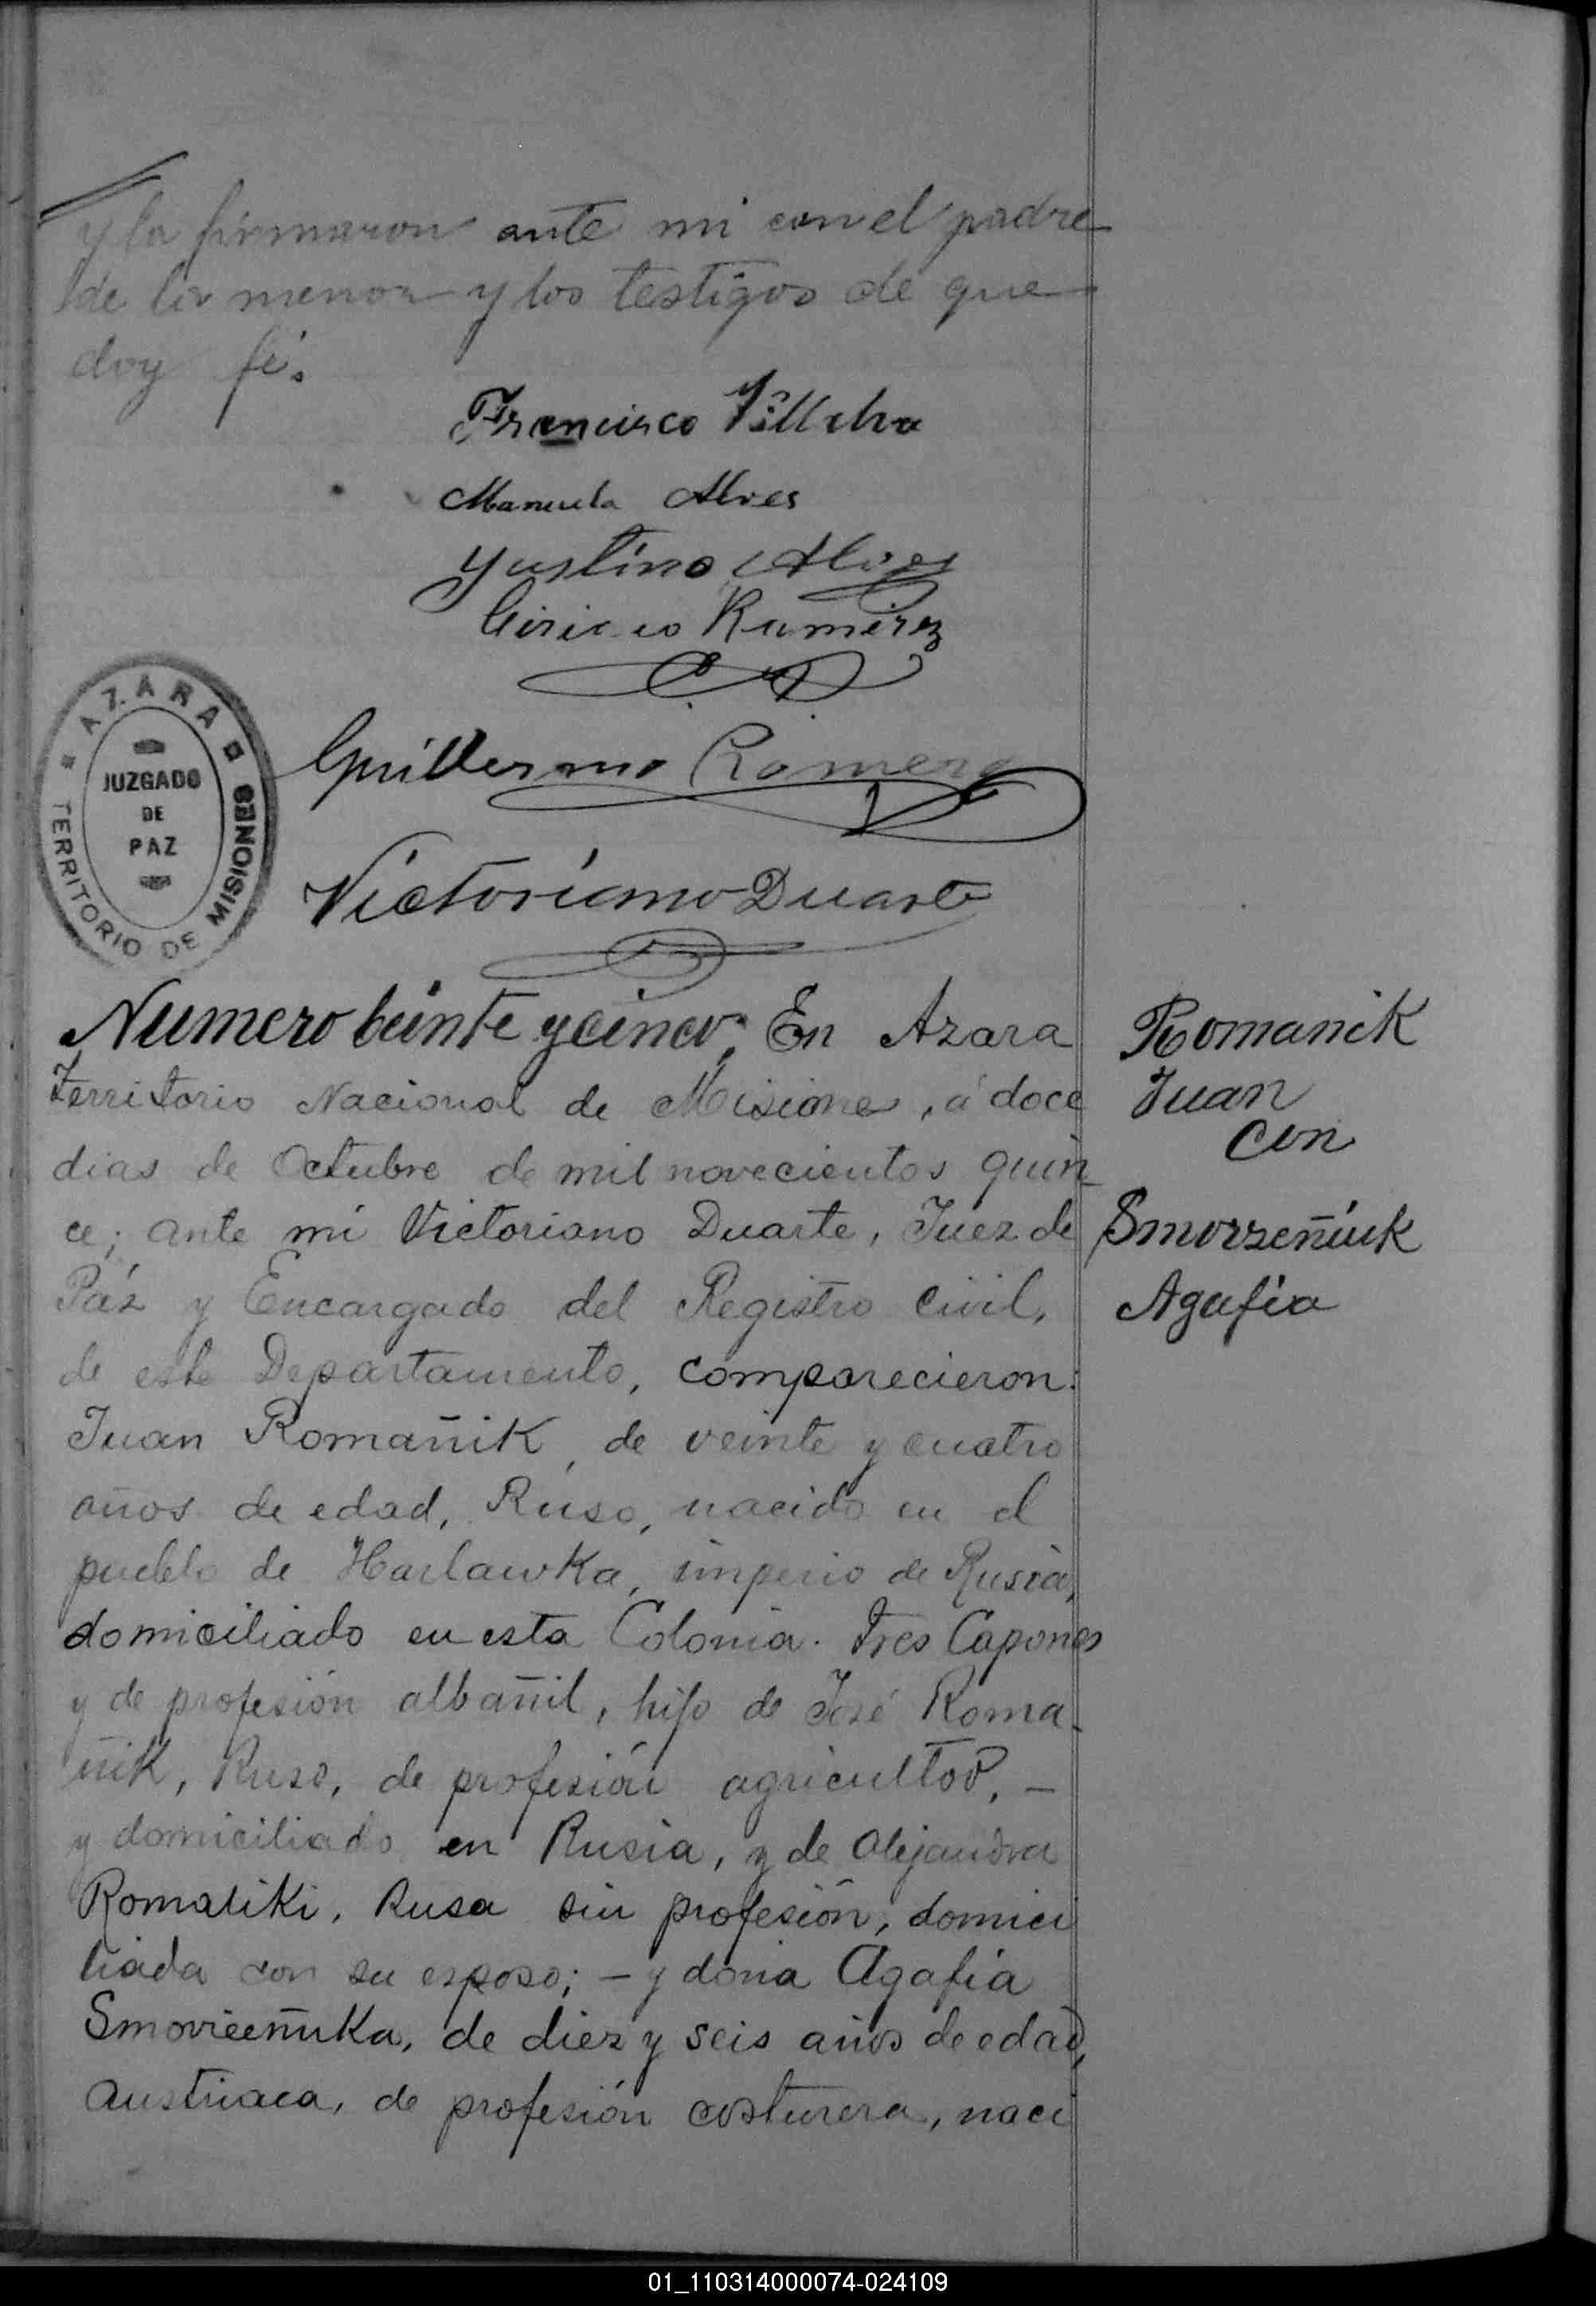 y la firmaron ante mi con el padre
de la menor y los testigos de que
doy fé.
Francisco Villalva
Manuela Alves
Yustino Alves
Ciriaco Ramirez
AZARA
JUZGADO
DE
PAZ
TERRITORIO DE MISIONES
Guillermo Romero
Victoriano Duarte
Numero beinte y cinco. En Azara
Territorio Nacional de Misiones, á doce
dias de Octubre de mil novecientos quin-
ce; ante mí Victoriano Duarte, Juez de
Páz y Encargado del Registro Civil,
de este Departamento, comparecieron:
Juan Romañik, de veinte y cuatro
años de edad, Ruso, nacido en el
pueblo de Harlawka, imperio de Rusia,
domiciliado en esta Colonia. Tres Capones
y de profesión albañil, hijo de José Roma-
ñik, Ruso, de profesión agricultor, —
y domiciliado en Rusia, y de Alejandra
Romatiki, Rusa sin profesión, domici
liada con su esposo; — y doña Agafia
Smovieeñuka, de diez y seis años de edad,
Austriaca, de profesión costurera, naci
Romanik
Juan
con
Smorzeñiuk
Agafia
01_110314000074-024109